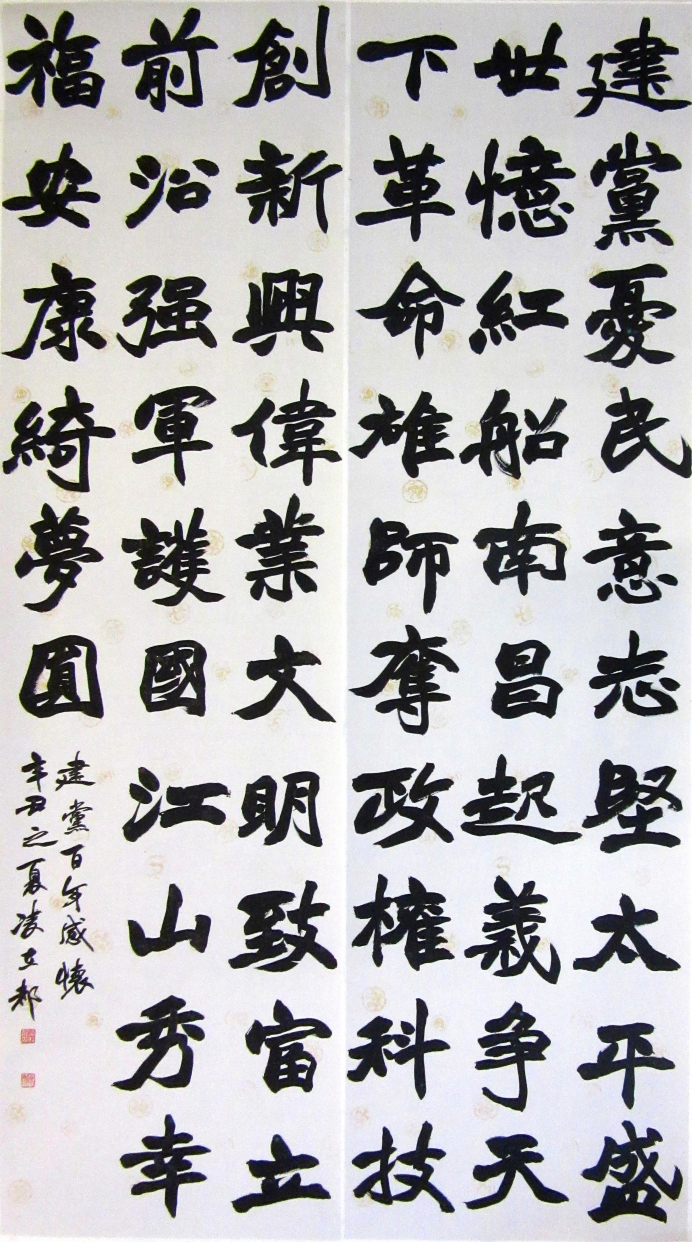 建黨憂民意志堅太平盛
世憶紅船南昌起義争天
下革命雄師奪政權科技
創新興偉業文明致富立
前沿强軍護國江山秀幸
福安康綺夢圓
建黨百年感懷
辛丑之夏凌立都